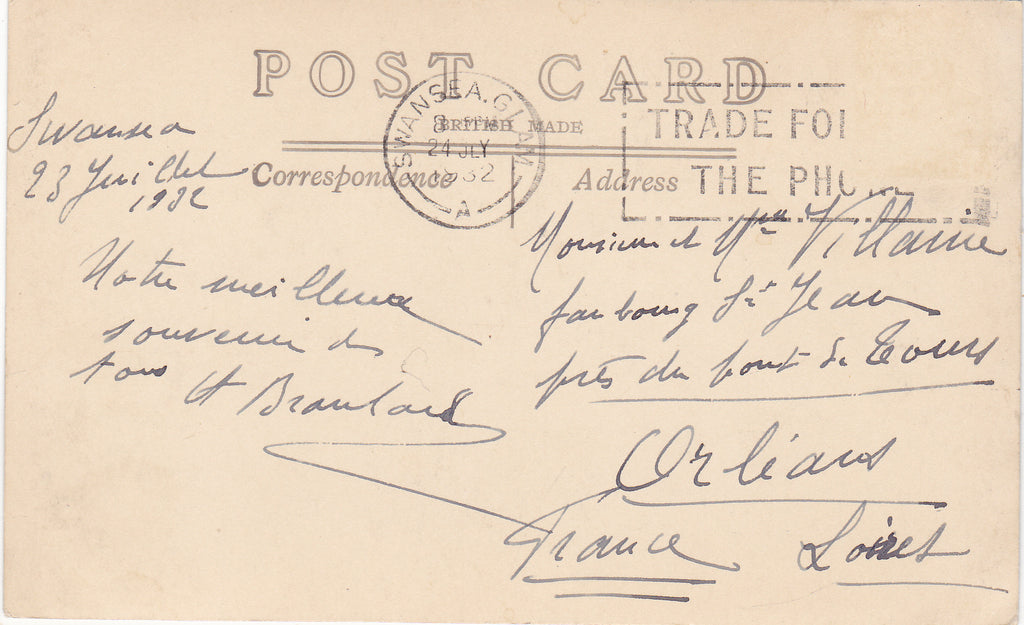 POST CARD
BRITISH MADE
Correspondence
Address
SWANSEA. GLAM.
8 PM
24 JLY
1932
A
TRADE FOL
THE PHO
Swansea
23 Juillet
1932
Notre meilleure
souvenir de
tous
Monsieur et Mme Villaine
faubourg St Jean
près du pont de Tours
Orléans
France Loiret